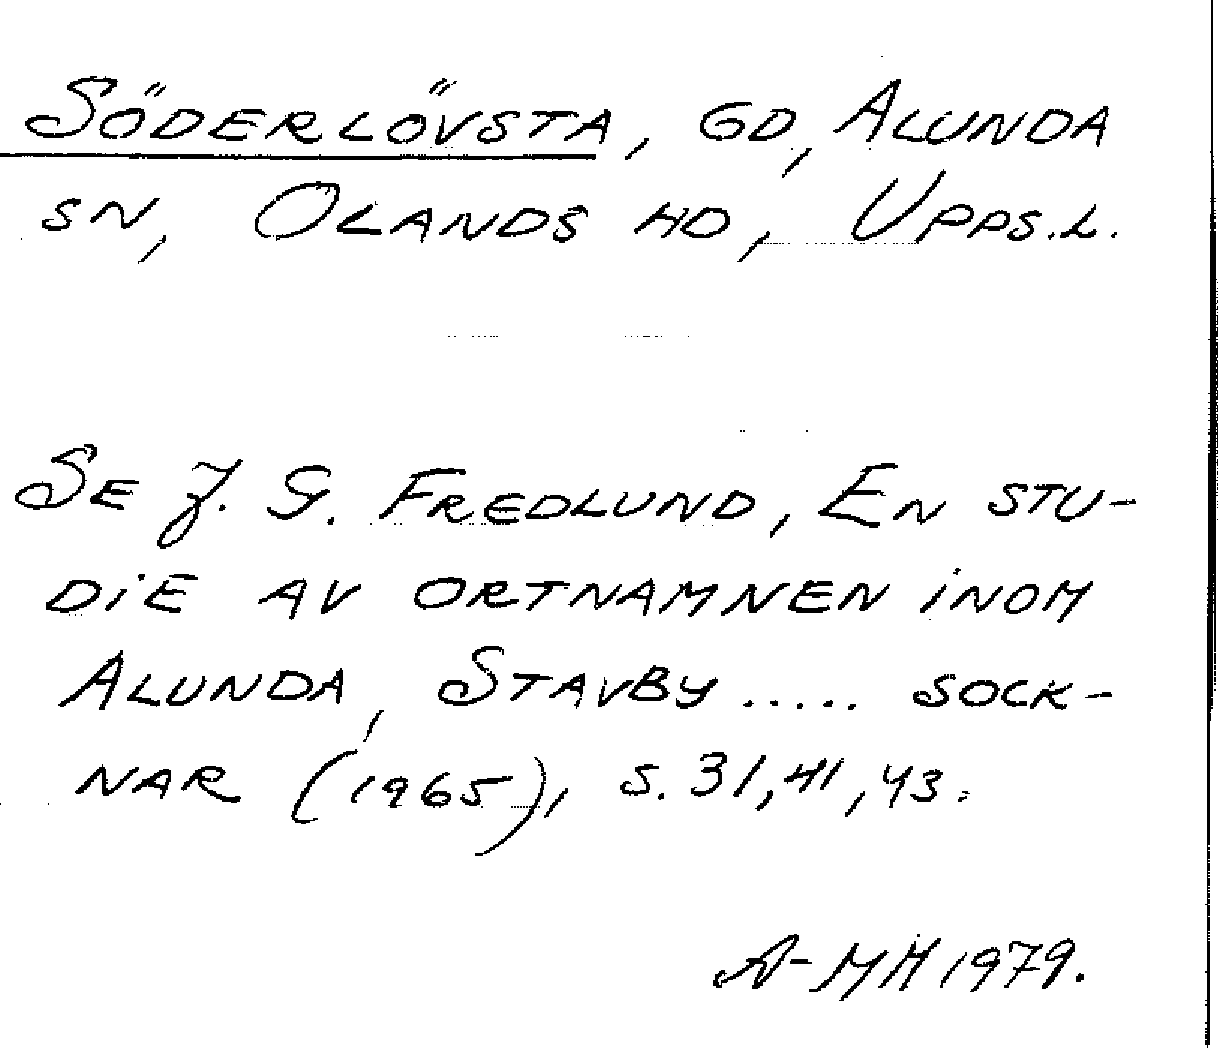 SÖDERLÖVSTA, GD, ALUNDA
SN, OLANDS HD, UPPS.L.
SE J. G. FREDLUND, EN STU-
DIE AV ORTNAMNEN INOM
ALUNDA, STAVBY ..... SOCK-
NAR (1965), S. 31, 41, 43.
A-MH 1979.